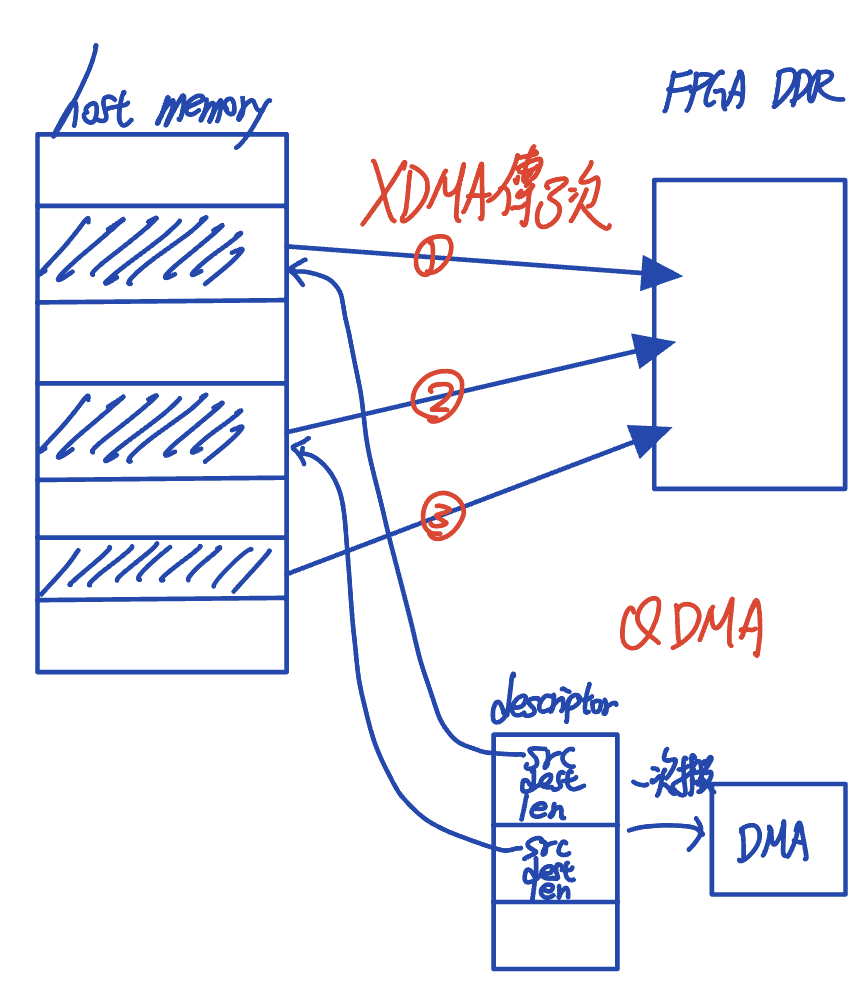 host memory
FPGA DDR
XDMA傳3次
①
②
③
QDMA
descriptor
src
dest
len
一次搬
src
dest
len
DMA